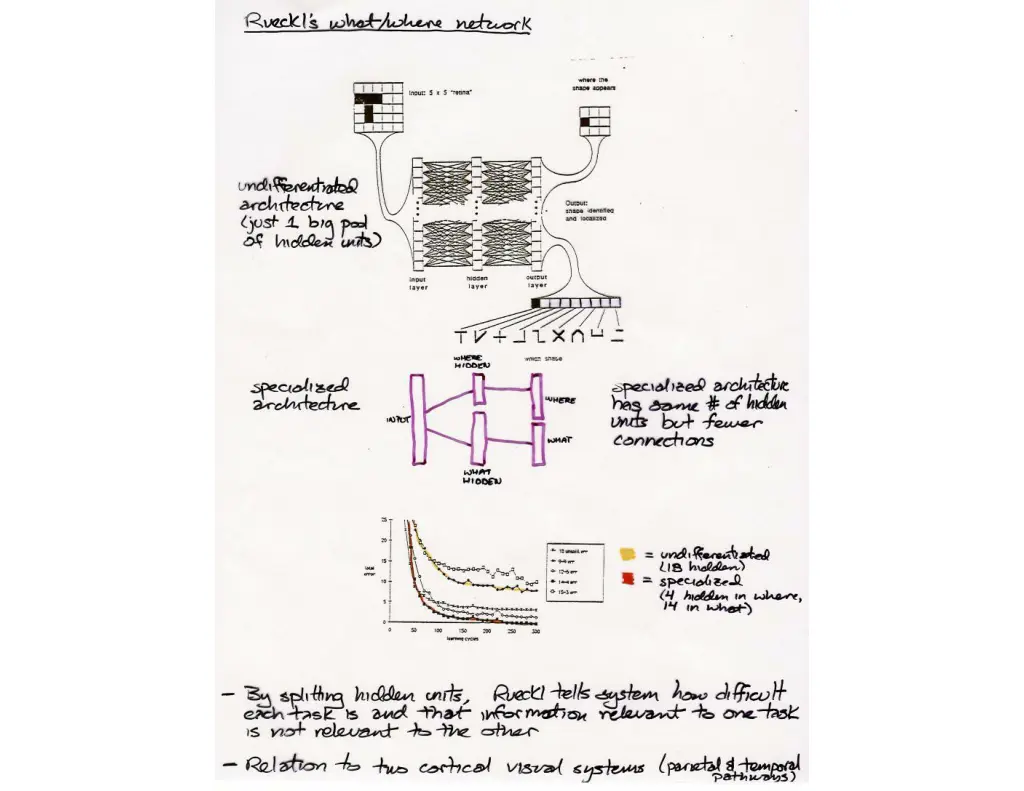 Rueckl's what/where network
Input: 5 x 5 "retina"
where the
shape appears
undifferentiated
architecture
(just 1 big pool
of hidden units)
Output:
shape identified
and localized
input
layer
hidden
layer
output
layer
which shape
specialized
architecture
WHERE
HIDDEN
INPUT
WHERE
WHAT
WHAT
HIDDEN
specialized architecture
has same # of hidden
units but fewer
connections
25
20
15
10
5
0
total
error
0 50 100 150 200 250 300
learning cycles
9-9 err
12-6 err
14-4 err
15-3 err
= undifferentiated
(18 hidden)
= specialized
(4 hidden in where,
14 in what)
- By splitting hidden units, Rueckl tells system how difficult
each task is and that information relevant to one task
is not relevant to the other
- Relation to two cortical visual systems (parietal & temporal
pathways)